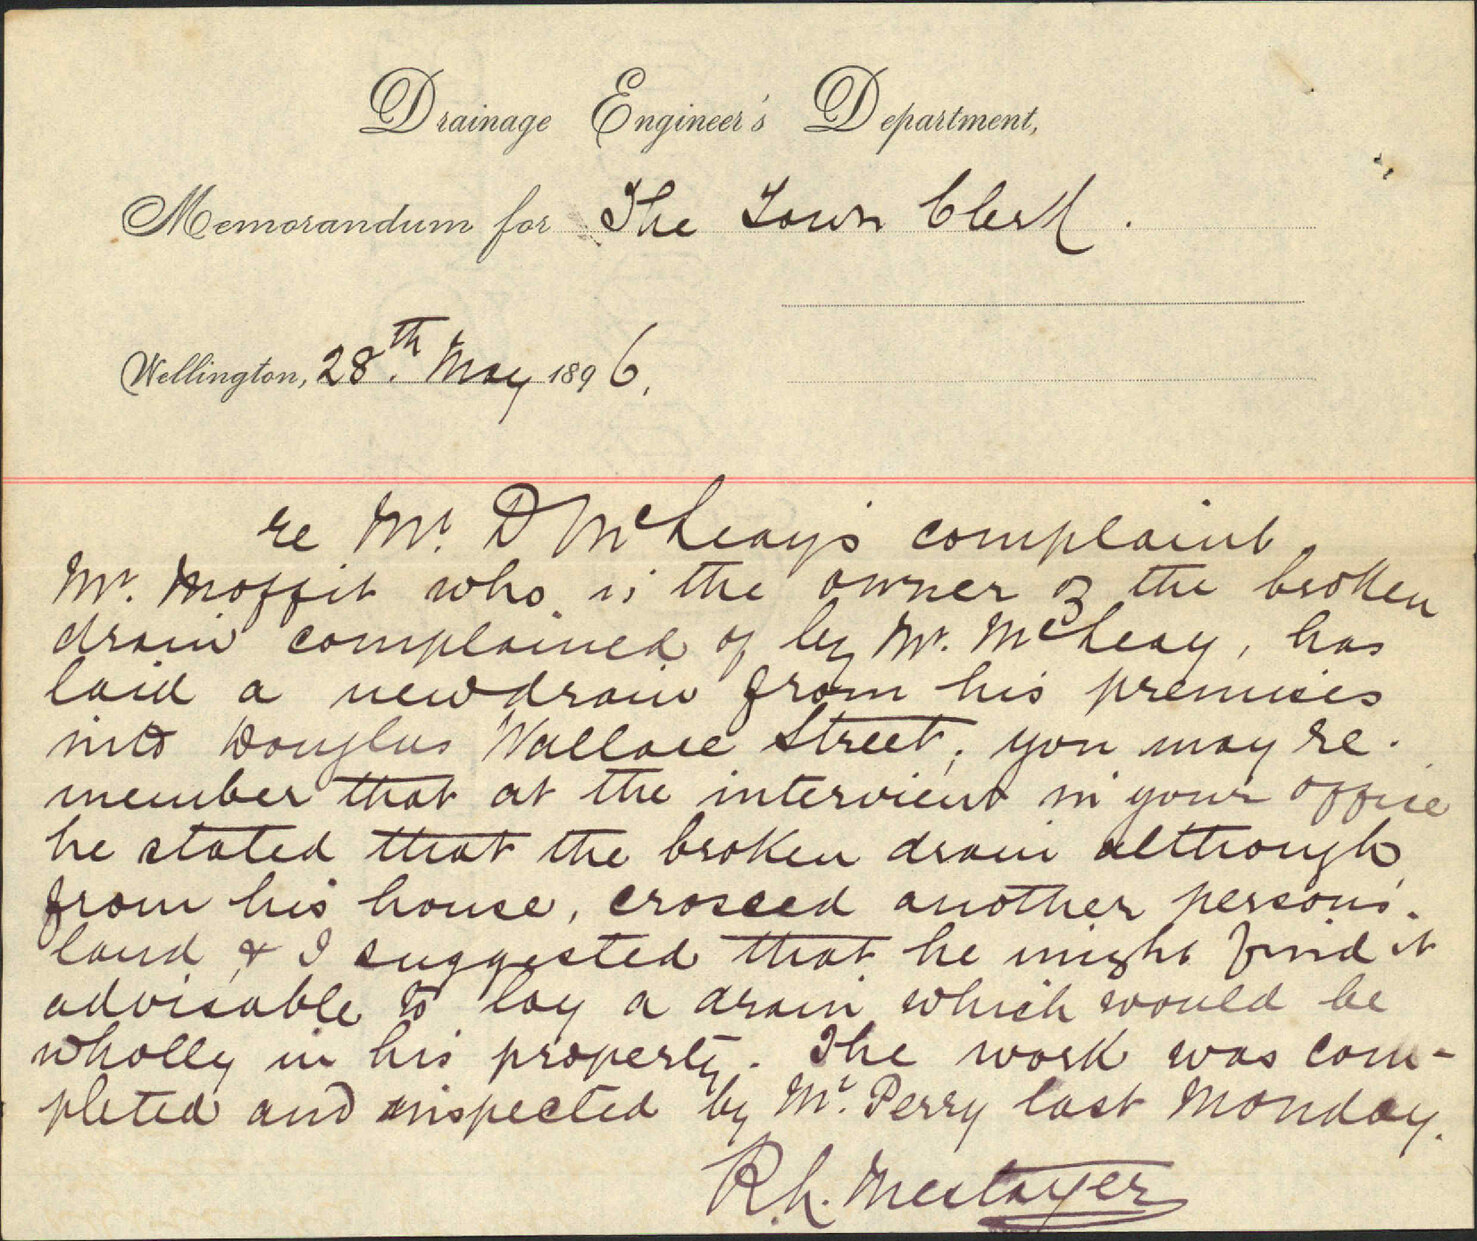 Drainage Engineer's Department,
Memorandum for The Town Clerk.
Wellington, 28th. May 1896.
re Mr. D McLeay's complaint
Mr. Moffit who is the owner of the broken
drain complained of by Mr. McLeay, has
laid a new drain from his premises
into Douglas Wallace Street; you may re-
member that at the interview in your office
he stated that the broken drain although
from his house, crossed another person's
land, & I suggested that he might find it
advisable to lay a drain which would be
wholly in his property. The work was com-
pleted and inspected by Mr. Perry last Monday.
R. L. Mestayer